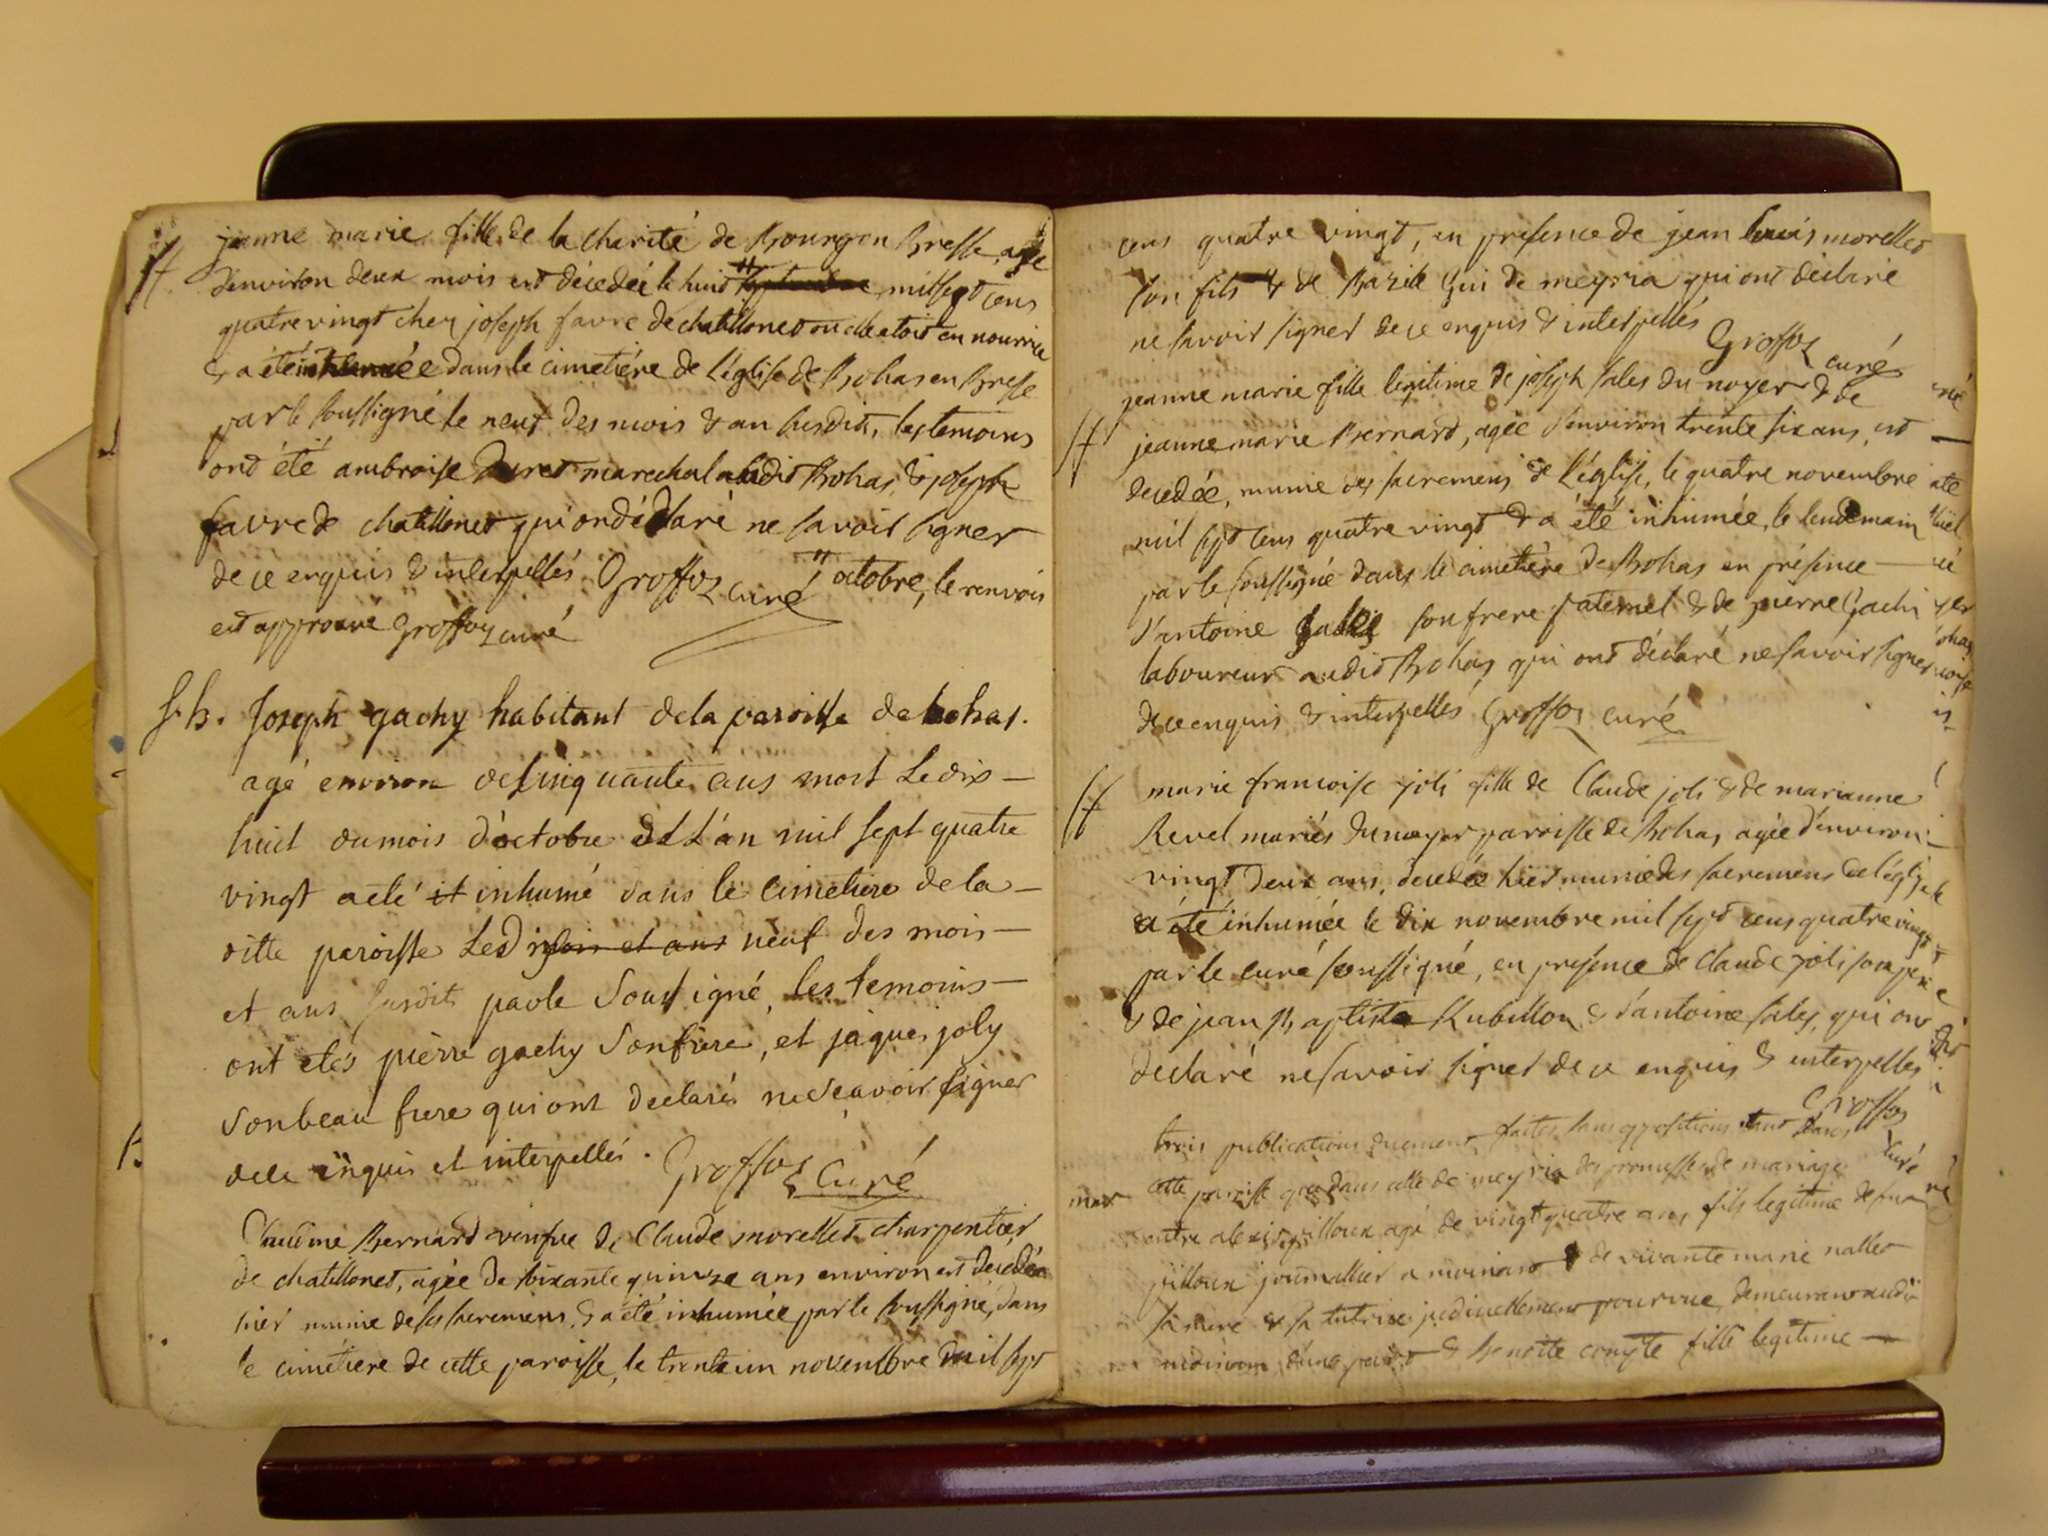 jeanne marie fille de la charité de Bourg en Bresse, agée
d'environ deux mois est décedée le huit " septembre mil sept cens
quatre vingt chez joseph favre de chatillonet ou elle etoit en nourrice
& a été inhumée dans le cimetiére de l'église de Bohas en Bresse
par le soussigné le neuf des mois & an susdits, les temoins
ont été ambroise Duret marechal audit Bohas, & joseph
favre de chatillonet qui ont déclaré ne savoir signer
de ce enquis & interpellés Groffoz curé " octobre, le renvois
est approuvé Groffoz curé
S. h. Joseph gachy habitant de la paroisse de bohas.
agé environ de cinquante ans mort le dix-
huit du mois d'octobre de L'an mil sept quatre
vingt a eté et inhumé dans le cimetiere de la
ditte paroisse Le dix neuf des mois
et ans susdits par le Soussigné, les temoins
ont etés piérre gachy Son frere, et jaques joly
Son beau frere qui ont declarés ne Scavoir signer
de ce enquis et interpellés. Groffoz Curé
Claudine Bernard veufve de Claude morellet charpentier
de chatillonet, agée de soixante quinze ans environ est decedée
hier munie de ses sacremens, & a été inhumée par le soussigné, dans
le cimetiere de cette paroisse, le trente un novembre mil sept
cens quatre vingt, en presence de jean louis morellet
son fils & de Bazile Gui de meyria qui ont déclaré
ne savoir signer de ce enquis & interpellés Groffoz curé
jeanne marie fille legitime de joseph sales du noyer & de
jeanne marie Bernard, agée d'environ trente six ans, est
decedée, munie des sacremens de l'église, le quatre novembre
mil sept cens quatre vingt & a été inhumée, le lendemain
par le soussigné dans le cimetiére de Bohas en présence
d'antoine sales son frere paternel & de pierre Gachi
laboureur audit Bohas qui ont déclaré ne savoir signer
de ce enquis & interpellés Groffoz curé
marie francoise joli fille de Claude joli & de marianne
Revel mariés du noyer paroisse de Bohas, agée d'environ
vingt deux ans, decedée hier munie des sacremens de l'église
a été inhumée le dix novembre mil sept cens quatre vingt
par le curé soussigné, en presence de Claude joli son pere
& de jean Baptiste Rubillon & d'antoine sales, qui ont
declaré ne savoir signer de ce enquis & interpellés
Groffoz curé
mar trois publications duement faites sans oppositions tant dans
cette paroisse que dans celle de meyria des promesses de mariage
entre alexis pilloux agé de vingt quatre ans fils legitime de feu
pilloux journallier a moinans & de vivante marie nallet
sa mere & sa tutrice judiciellement pourvue, demeurant audit
moinans d'une part & Benoite compte fille legitime